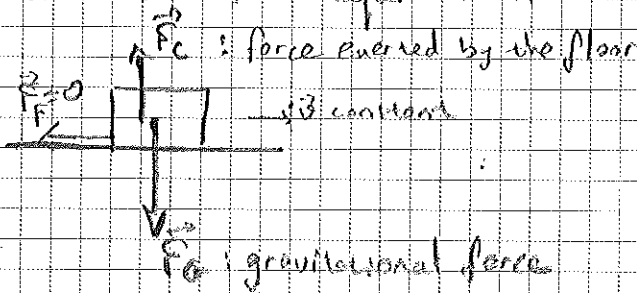 F⃗c : force exerted by the floor
F⃗F = 0
v⃗ constant
F⃗G : gravitational force